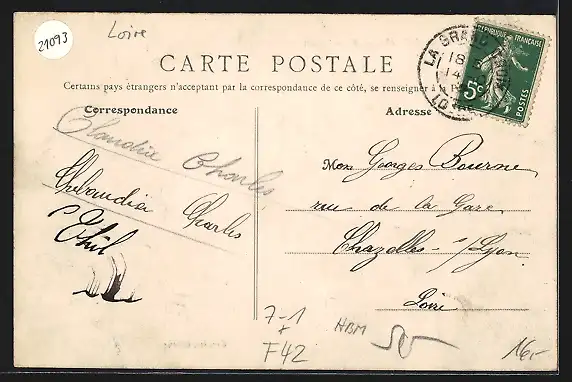 21093
Loire
CARTE POSTALE
Certains pays étrangers n'acceptant par la correspondance de ce côté, se renseigner à la
RÉPUBLIQUE FRANÇAISE
5c
POSTES
LA GRAND
Correspondance
Adresse
Charles
Charles
Mon Georges Bourne
rue de la Gare
Chazelles-s/Lyon
Loire
7-1
+
F42
HBM
16,-